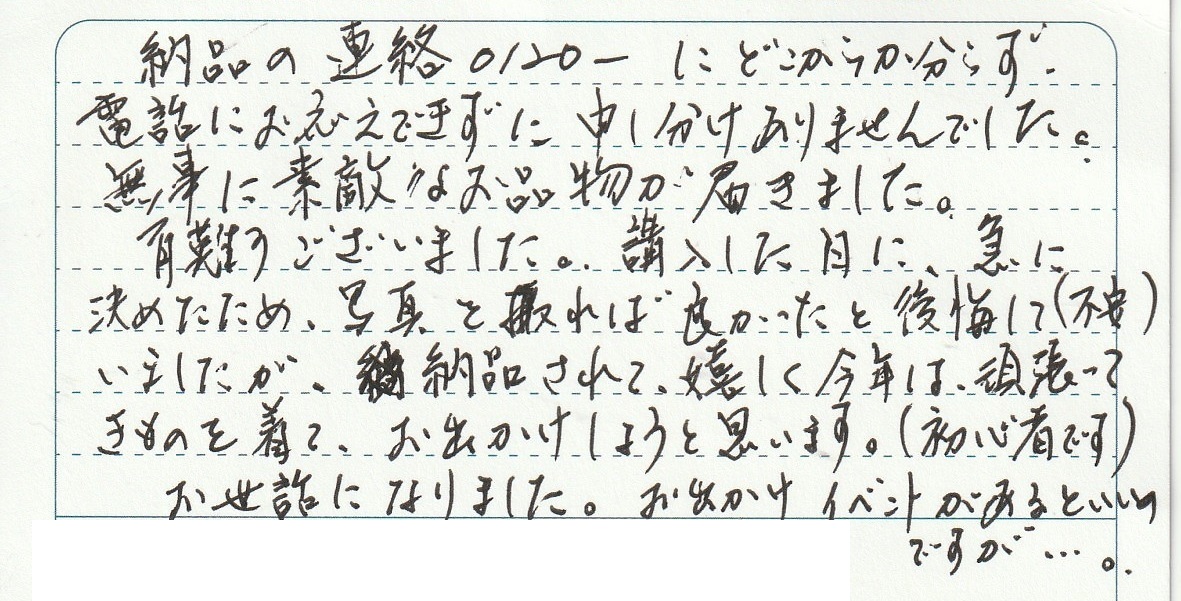 納品の連絡0120ーにどこからか分らず、
電話にお応えできずに申し分けありませんでした。
無事に素敵なお品物が届きました。
有難うございました。講入した日に、急に
決めたため、写真と撮れば良かったと後悔して(不安)
いましたが、納品されて、嬉しく今年は、頑張って
きものを着て、お出かけしようと思います。(初心者です)
お世話になりました。お出かけイベントがあるといいの
ですが…。